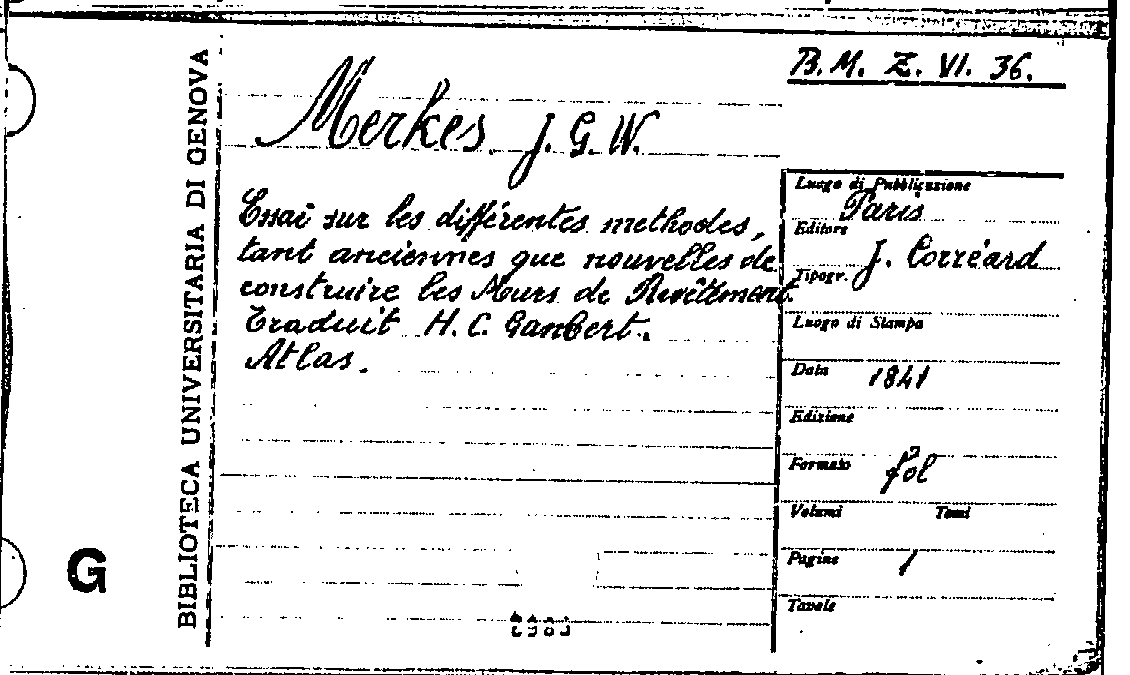 B.M. Z. VI. 36.
BIBLIOTECA UNIVERSITARIA DI GENOVA
Merkes. J. G. W.
Essai sur les différentes methodes,
tant anciennes que nouvelles de
construire les Murs de Revêtement.
Traduit H. C. Gaubert.
Atlas.
Luogo di Pubblicazione
Paris
Editore
J. Corréard
Tipogr.
Luogo di Stampa
Data 1841
Edizione
Formato fol
Volumi Tomi
Pagine 1
Tavole
G